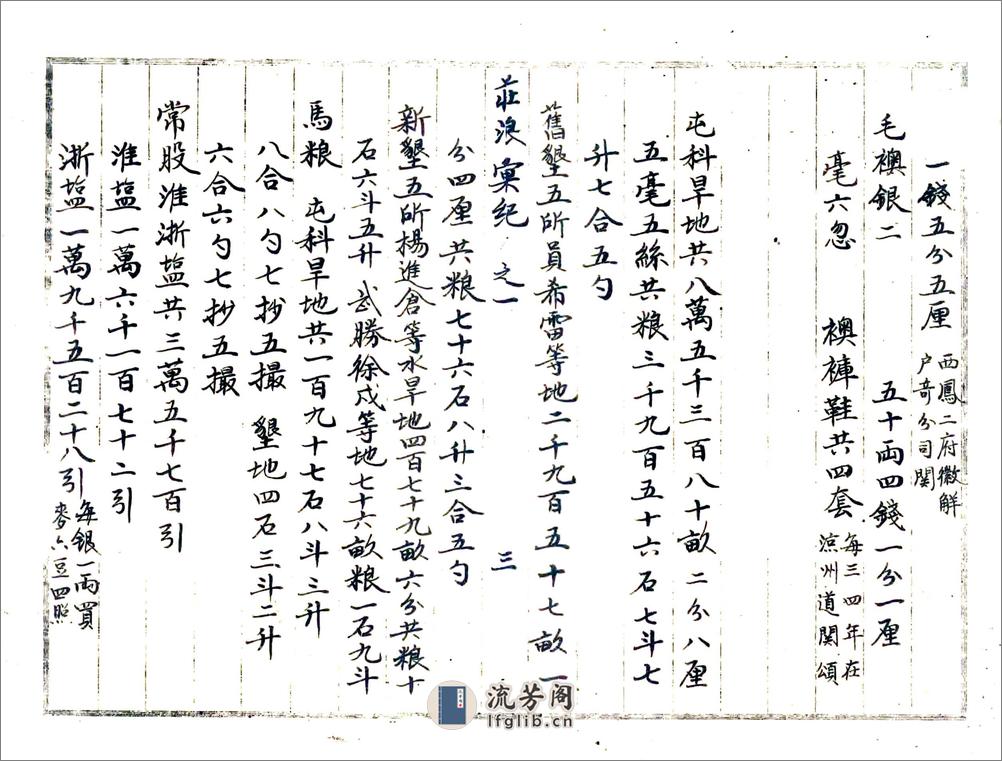 一錢五分五厘 西鳳二府徵解
户奇分司関
毛襖銀二 五十両四錢一分一厘
毫六忽 襖褲鞋共四套 每三四年在
涼州道関領
屯科旱地共八萬五千三百八十畝二分八厘
五毫五絲共粮三千九百五十六石七斗七
升七合五勺
舊墾五所員希雷等地二千九百五十七畝一
莊浪彙紀 之一 三
分四厘共粮七十六石八升三合五勺
新墾五所楊進倉等水旱地四百七十九畝六分共粮十
石六斗五升 武勝徐成等地七十六畝粮一石九斗
馬粮 屯科旱地共一百九十七石八斗三升
八合八勺七抄五撮 墾地四石三斗二升
六合六勺七抄五撮
常股淮浙塩共三萬五千七百引
淮塩一萬六千一百七十二引
浙塩一萬九千五百二十八引 每銀一両買
麥六豆四照
流芳阁
lfglib.cn